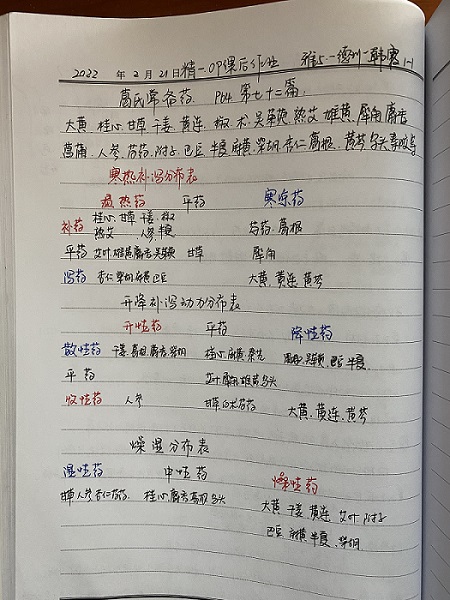 2022 年 2 月 21 日 精一 OP课后作业 雅 一德州一韩
葛氏常备药. P64 第七十二篇
大黄 桂心 甘草 干姜 黄连 椒 术 吴茱萸 熟艾 雄黄 犀角 麝香
菖蒲 人参 芍药 附子 巴豆 半夏 麻黄 柴胡 杏仁 葛根 黄芩 乌头
寒热补泻分布表
温热药 平药 寒凉药
补药 桂心 甘草 干姜 椒
熟艾 人参 半夏 芍药 葛根
平药 艾叶 雄黄 麝香 吴茱萸 甘草 犀角
泻药 杏仁 柴胡 麻黄 巴豆 大黄 黄连 黄芩
升降补泻动力分布表
升性药 平药 降性药
散性药 干姜 葛根 麝香 柴胡 桂心 麻黄 吴茱萸 巴豆 半夏
平药 艾叶 犀角 雄黄 乌头
收性药 人参 甘草 白术 芍药 大黄、黄连、黄芩
燥湿分布表
湿性药 中性药 燥性药
甘草 人参 杏仁 芍药. 桂心 麝香 葛根 乌头 大黄 干姜 黄连 艾叶 附子
巴豆 麻黄 半夏、柴胡